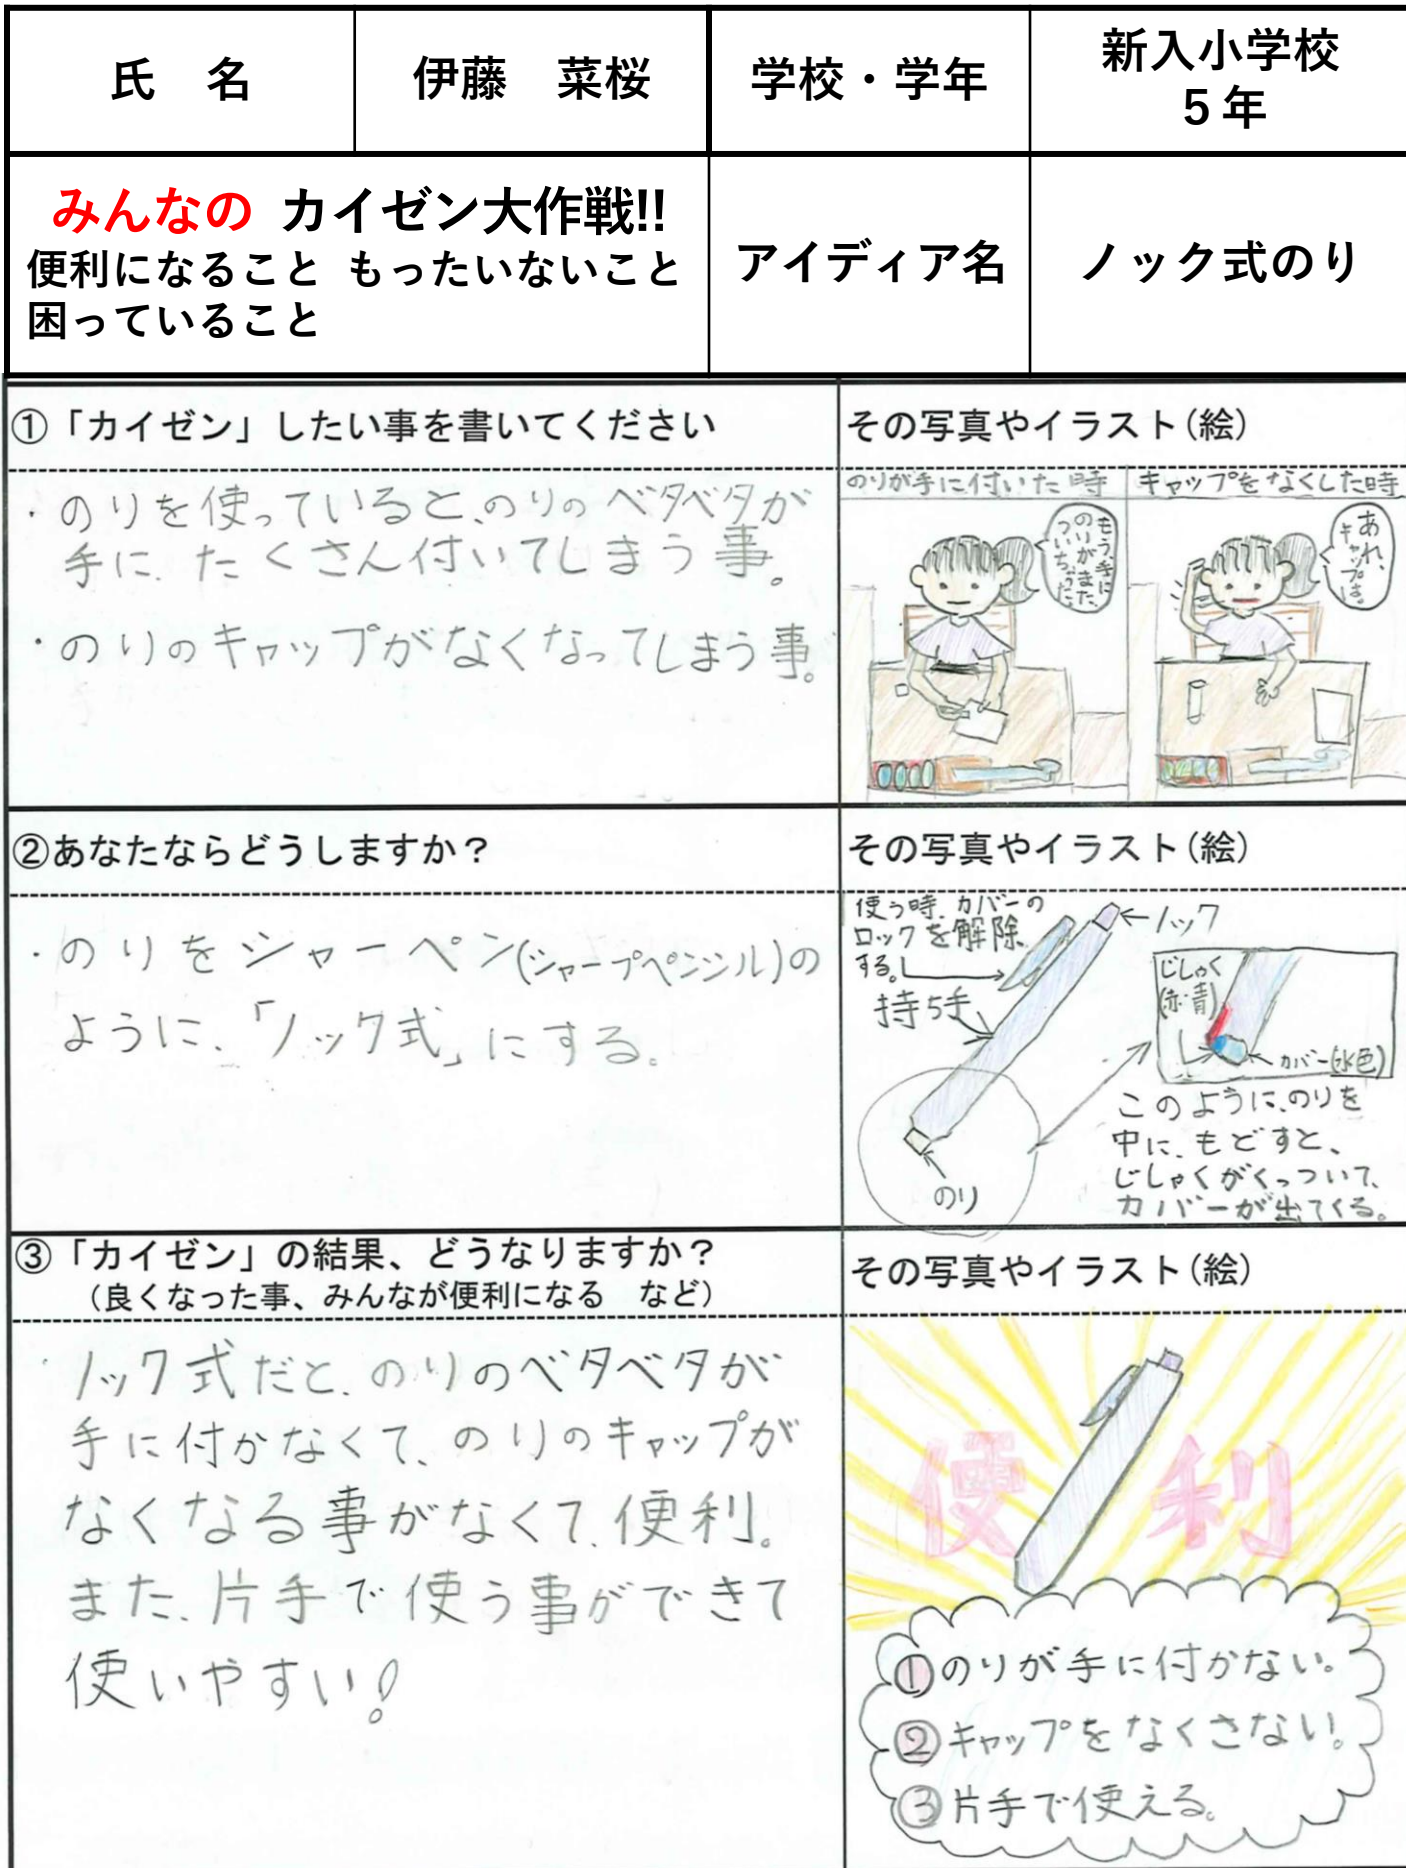 氏　名
伊藤　菜桜
学校・学年
新入小学校
５年
みんなの カイゼン大作戦!!
便利になること もったいないこと
困っていること
アイディア名
ノック式のり
①「カイゼン」したい事を書いてください
・のりを使っていると、のりのベタベタが
手に、たくさん付いてしまう事。
・のりのキャップがなくなってしまう事。
その写真やイラスト(絵)
のりが手に付いた時
もう、手に
のりがまた、
ついちゃった。
キャップをなくした時
あれ、
キャップは。
②あなたならどうしますか？
・のりをシャーペン(シャープペンシル)の
ように、「ノック式」にする。
その写真やイラスト(絵)
使う時、カバーの
ロックを解除
する。
ノック
持ち手
のり
じしゃく
(赤・青)
カバー(水色)
このように、のりを
中に、もどすと、
じしゃくがくっついて、
カバーが出てくる。
③「カイゼン」の結果、どうなりますか？
（良くなった事、みんなが便利になる　など）
・ノック式だと、のりのベタベタが
手に付かなくて、のりのキャップが
なくなる事がなくて、便利。
また、片手で使う事ができて
使いやすい！
その写真やイラスト(絵)
便利
①のりが手に付かない。
②キャップをなくさない。
③片手で使える。